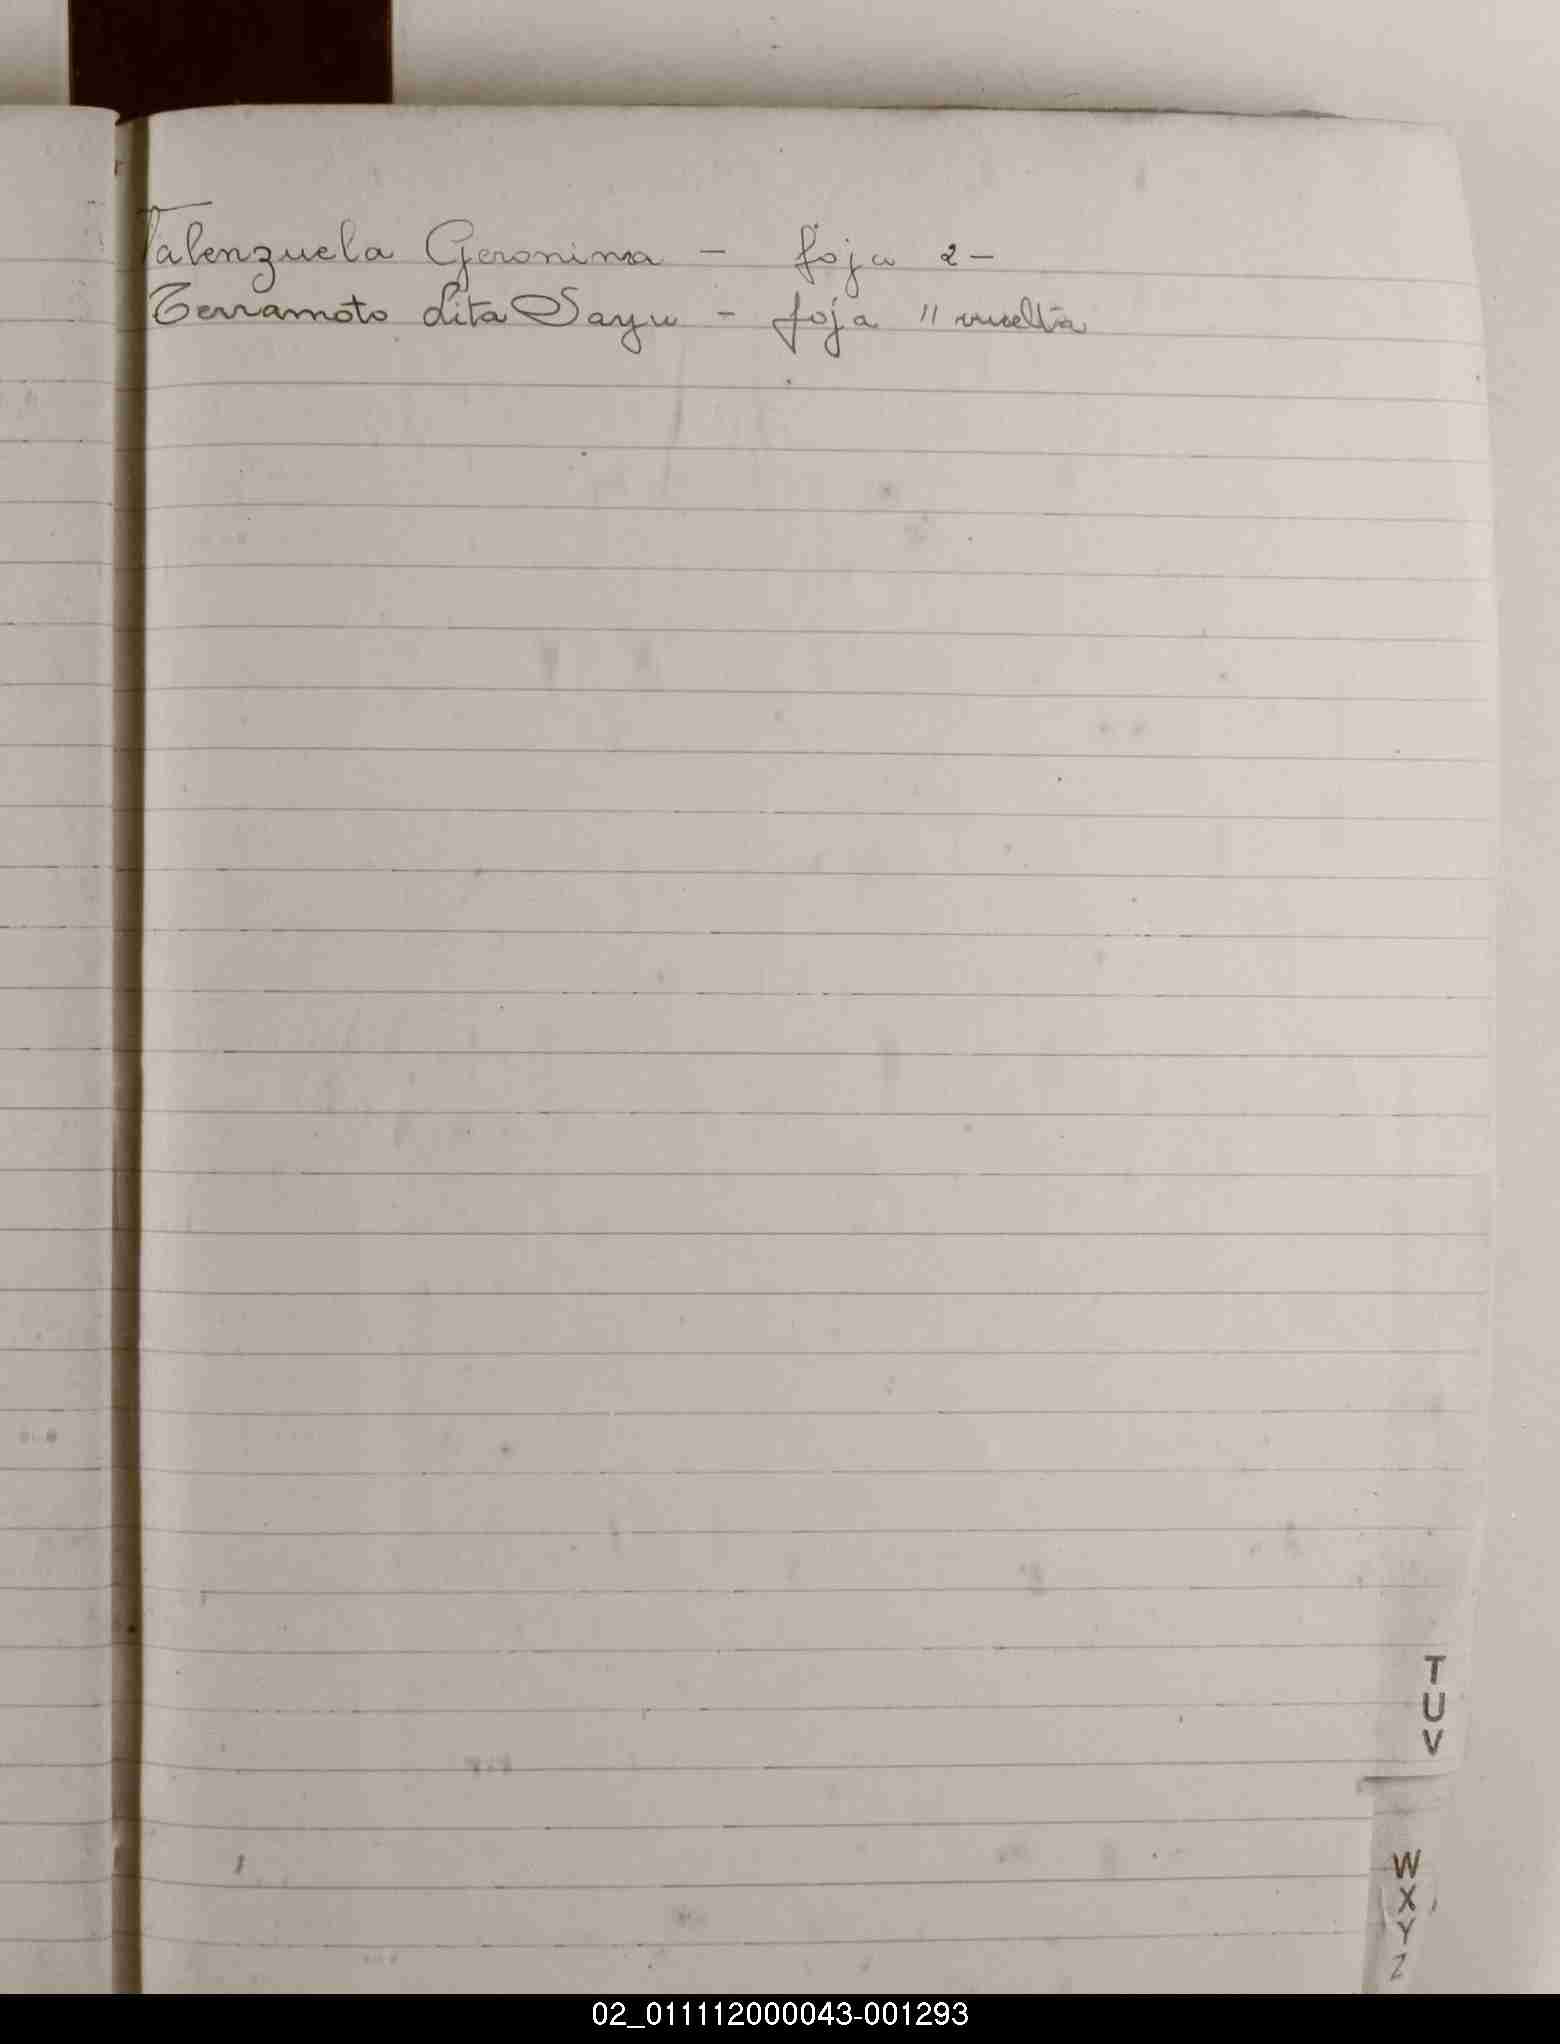 Valenzuela Geronima - foja 2-
Terramoto Lita Sayu - foja 11 vuelta
T
U
V
W
X
Y
Z
02_011112000043-001293